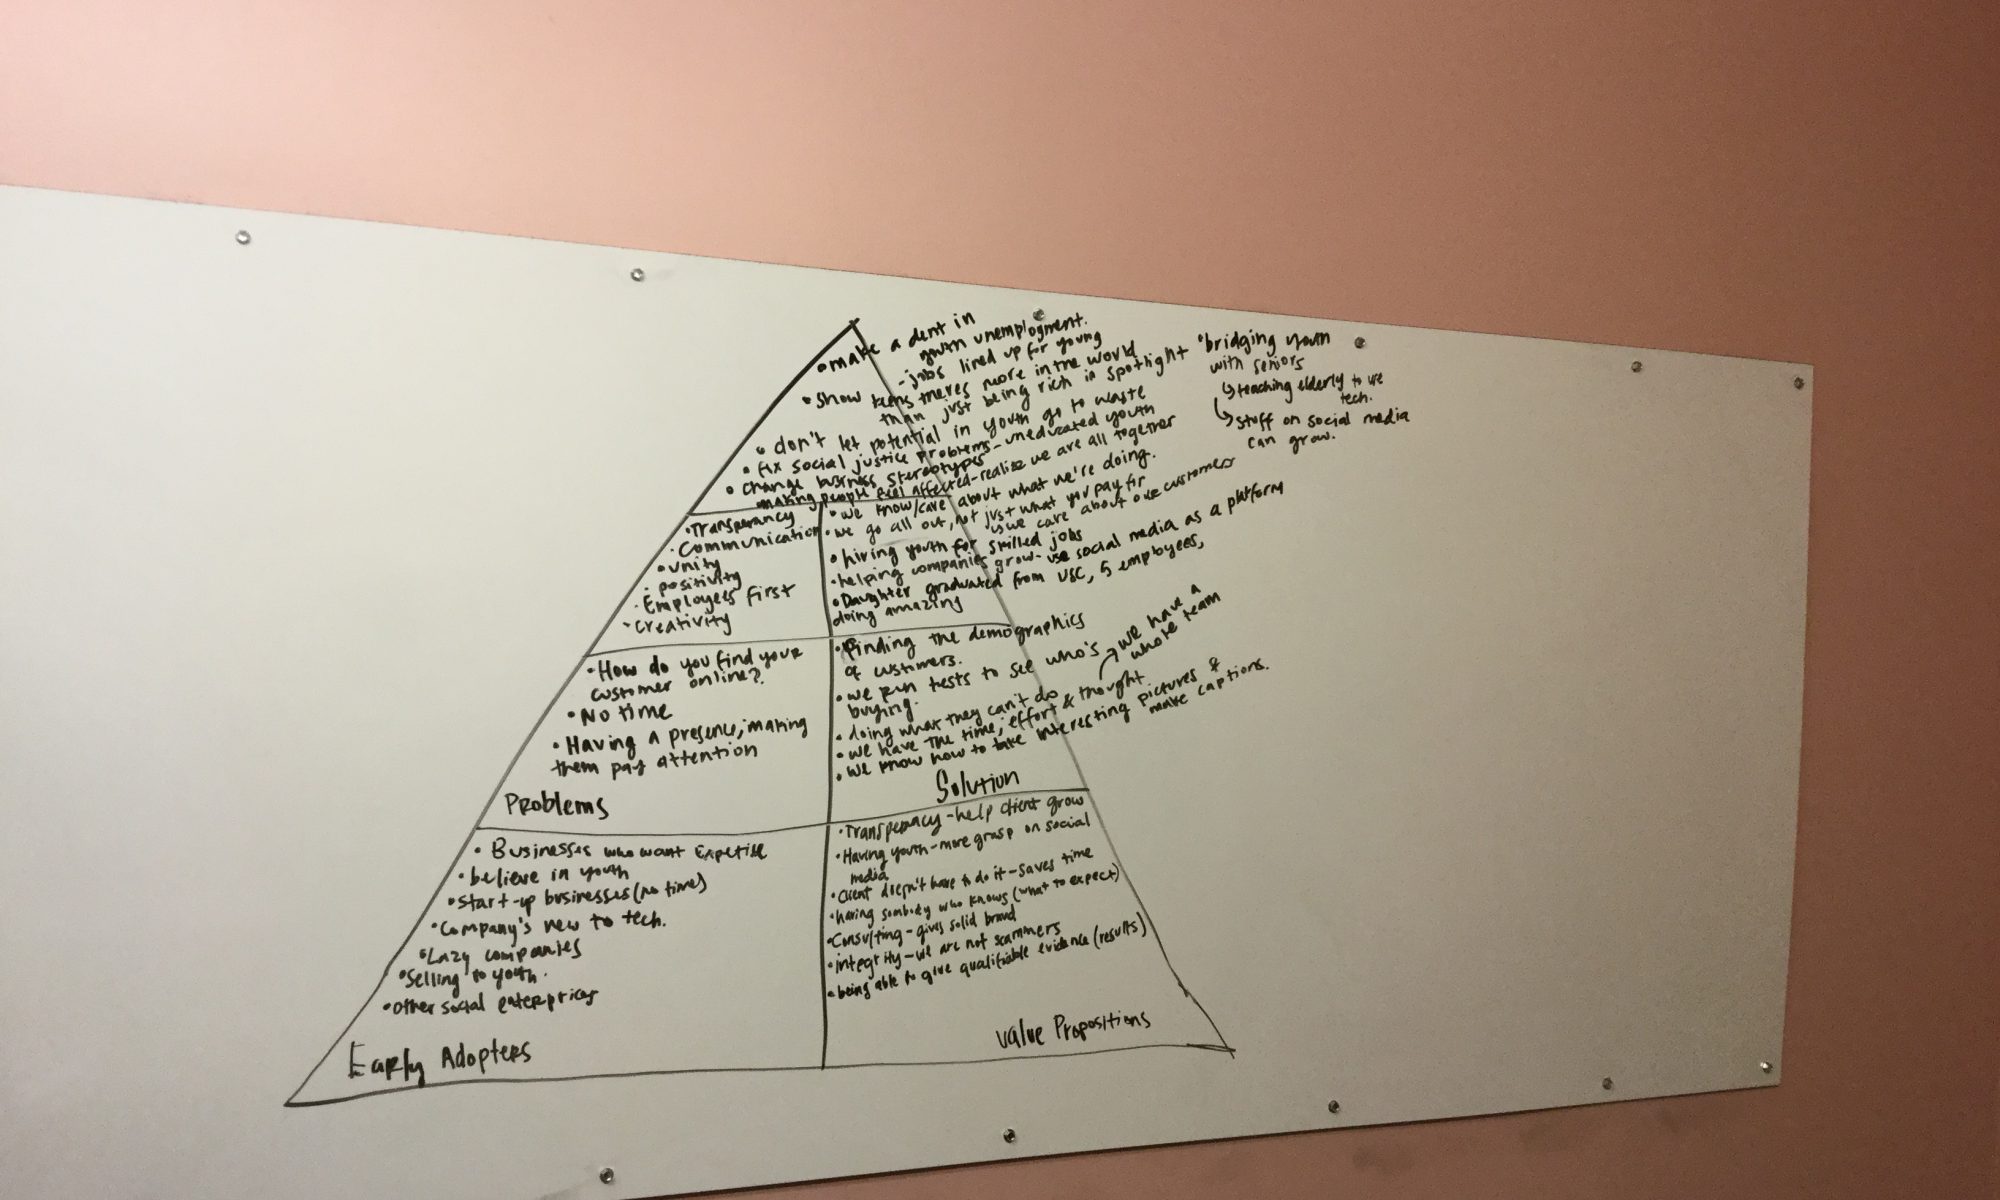 • make a dent in
youth unemployment.
- jobs lined up for young
• show teens theres more in the world
than just being rich in spotlight
• don't let potential in youth go to waste
• fix social justice problems - uneducated youth
• change business stereotypes - realize we are all together
making people feel affected
• bridging youth
with seniors
↳ teaching elderly to use
tech.
↳ stuff on social media
can grow.
• Transparancy
• Communication
• unity
• positivity
• Employees first
• creativity
• we know/care about what we're doing.
• we go all out, not just what you pay for
↳ we care about our customers
• hiring youth for skilled jobs
• helping companies grow - use social media as a platform
• Daughter graduated from USC, 5 employees,
doing amazing
• How do you find your
customer online?
• No time
• Having a presence, making
them pay attention
Problems
• Finding the demographics
of customers.
• we run tests to see who's
buying.
• doing what they can't do
• we have the time, effort & thought
→ we have a
whole team
• we know how to take interesting pictures &
make captions.
Solution
• Businesses who want Expertise
• believe in youth
• start-up businesses (no time)
• Company's new to tech.
• Lazy companies
• Selling to youth.
• other social enterprices
Early Adopters
• Transperacy - help client grow
• Having youth - more grasp on social
media
• Client doesn't have to do it - saves time
• having sombody who knows (what to expect)
• Consulting - gives solid brand
• integrity - we are not scammers
• being able to give qualifiable evidence (results)
Value Propositions